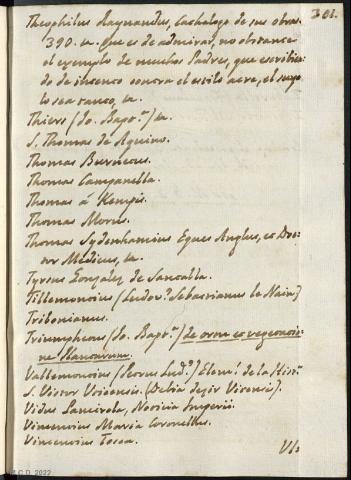 301.
Theophilus Raynaudus, Cathalogo de sus obras.
390. v. que es de admirar, no obstante
el exemplo de muchos Padres, que escribien-
do de intento contra el estilo acre, el suyo
lo sea tanto, v.
Thiers (Jo. Bapt.ª) v.
S. Thomas de Aquino.
Thomas Burneous.
Thomas Campanella.
Thomas á Kempis.
Thomas Morus.
Thomas Sydenhamius Eques Anglus, et Doc-
tor Medicus, v.
Tyrsus Gonzalez de Santalla.
Tillemoncius (Ludov.º Sebastianus le Nain)
Tribonianus.
Triumpheous (Jo. Bapt.ª) de ortu et vegetatio-
ne Plantarum.
Vallemoncius (Petrus Lud.º) Elem.ˢ de la Hist.ª
S. Victor Uticensis. (Debia dezir Vitensis).
Vidus Pancirola, Noticia Imperii.
Vincencius Maria Coronellus.
Vincencius Tosca.